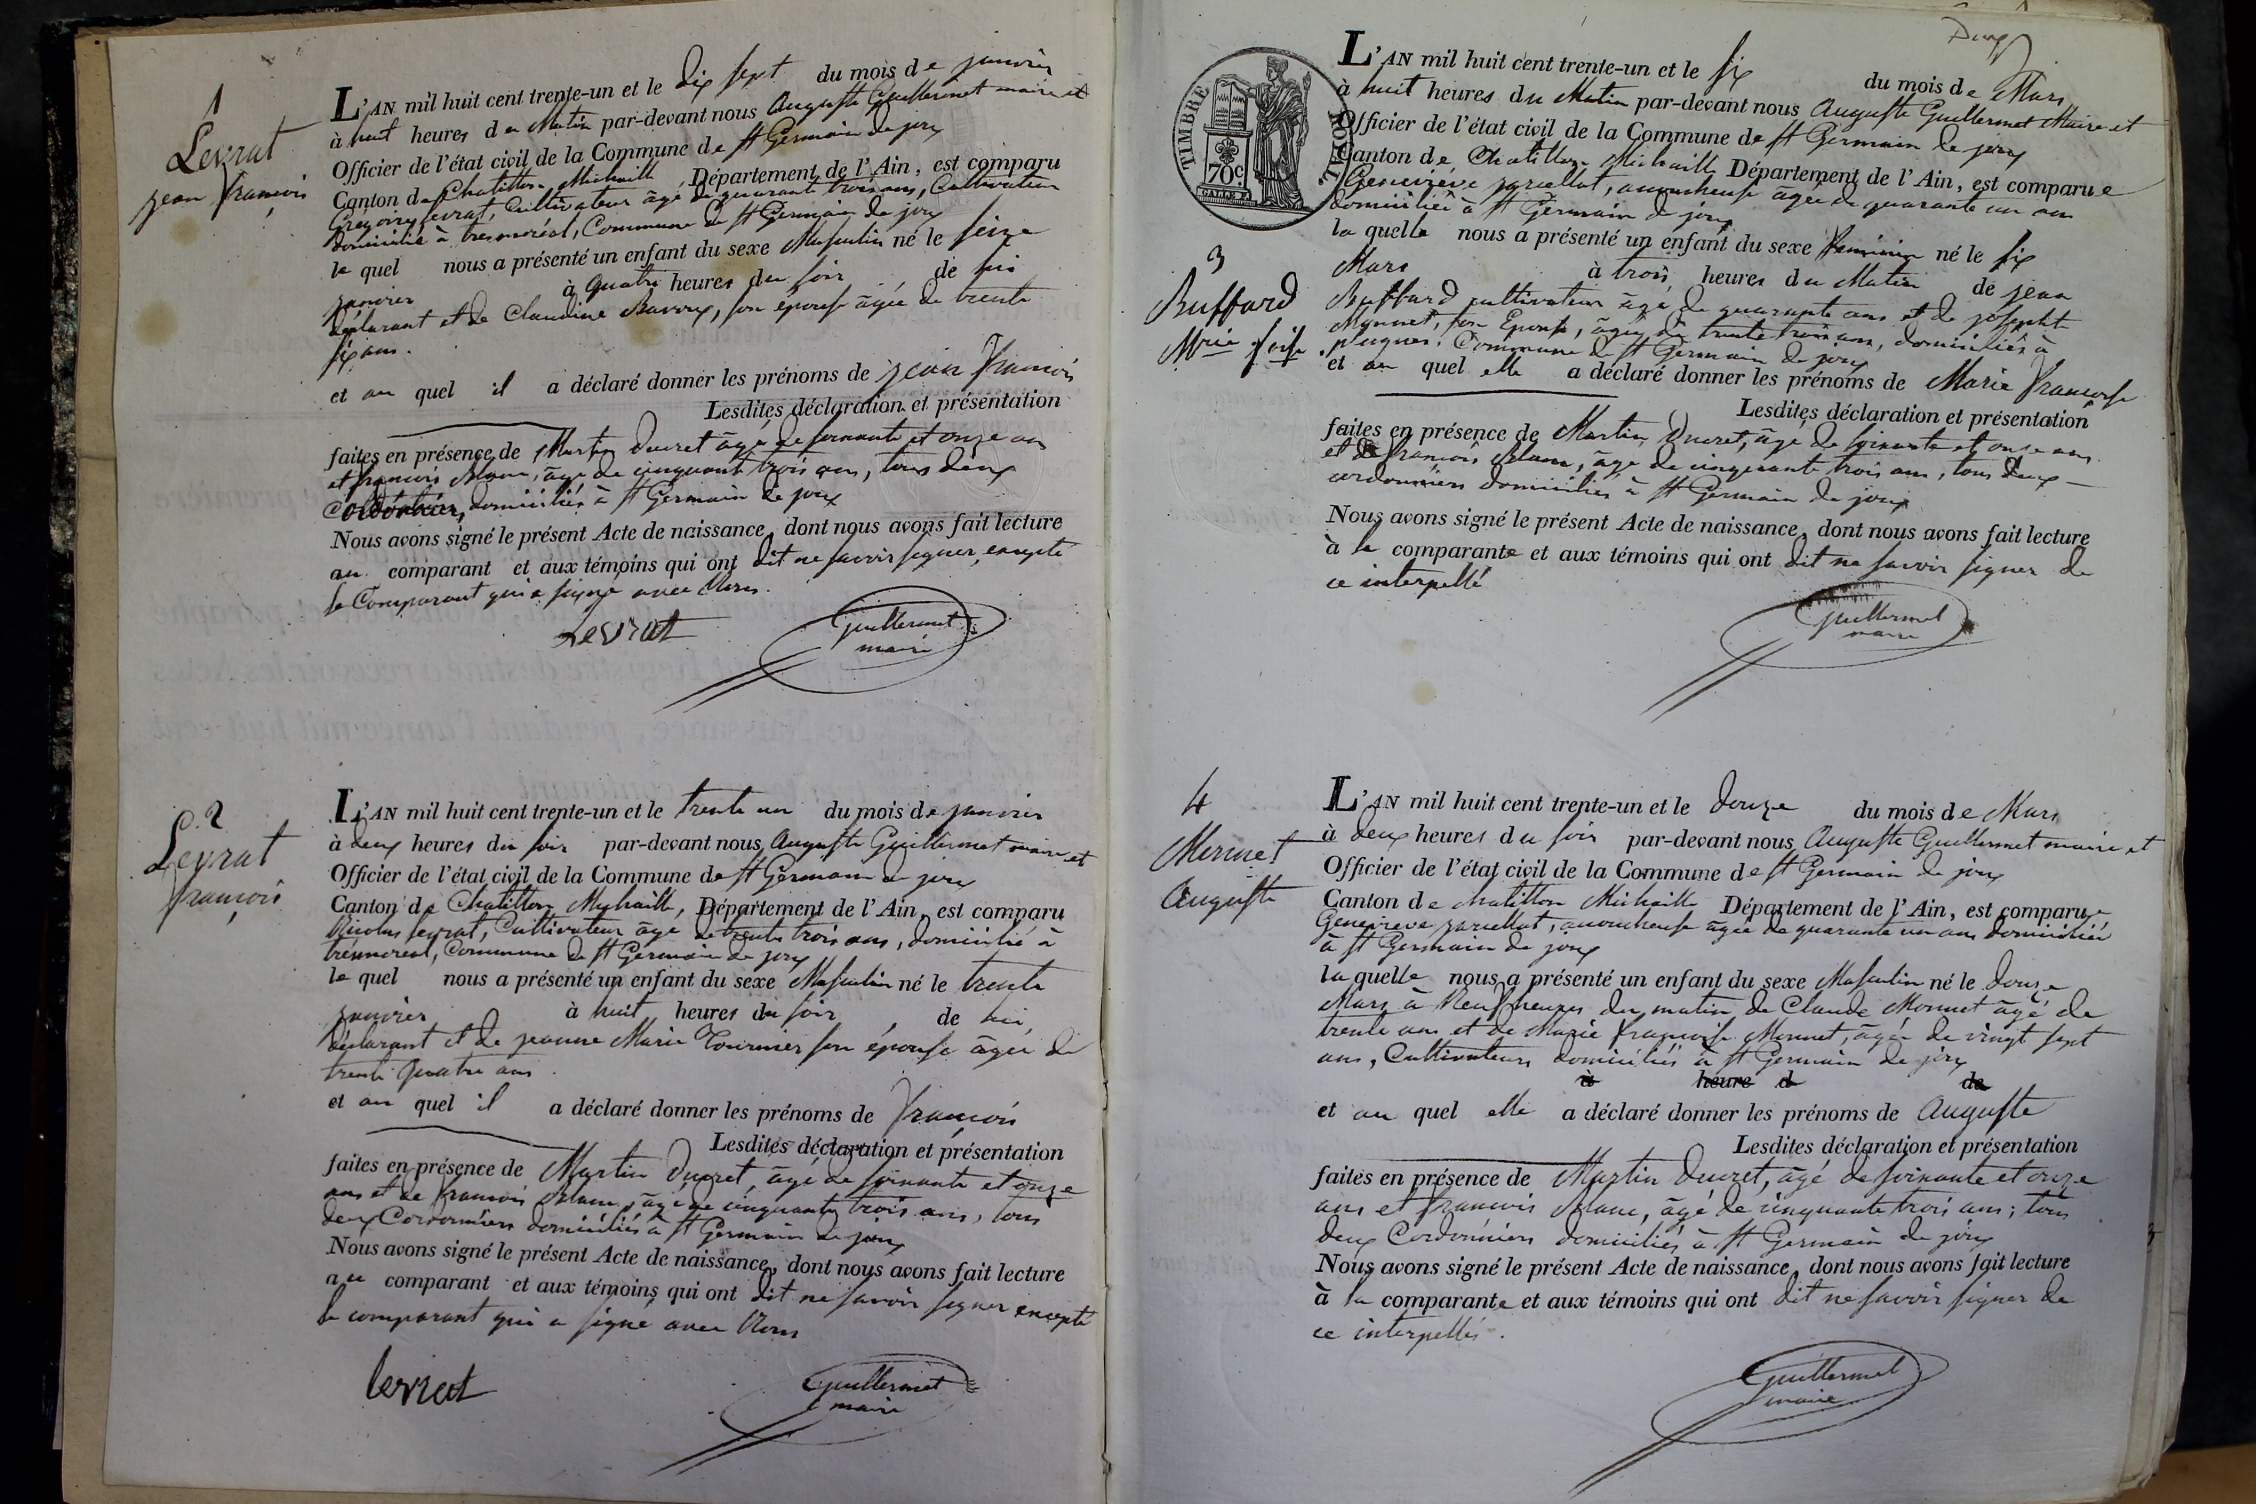 1
Levrat
jean françois
L'AN mil huit cent trente-un et le dix sept du mois de janvier
à huit heures du Matin par-devant nous Auguste Guillermet maire et
Officier de l'état civil de la Commune de St Germain de joux
Canton de Chatillon Michaille Département de l'Ain, est comparu
Grégoire Levrat, Cultivateur âgé de quarante trois ans, Cultivateur
domicilié à tresmoréal, Commune de St Germain de joux
le quel nous a présenté un enfant du sexe Masculin né le seize
janvier à quatre heures du soir de lui
déclarant et de Claudine Bavoux, son épouse âgée de trente
six ans.
et au quel il a déclaré donner les prénoms de jean françois
Lesdites déclaration et présentation
faites en présence de Martin Ducret âgé de soixante et onze ans
et françois Blanc, âgé de cinquante trois ans, tous deux
Cordonniers, domiciliés à St Germain de joux
Nous avons signé le présent Acte de naissance, dont nous avons fait lecture
au comparant et aux témoins qui ont dit ne savoir signer, excepté
le Comparant qui a signé avec Nous.
Levrat Guillermet
maire
2
Levrat
françois
L'AN mil huit cent trente-un et le trente un du mois de janvier
à deux heures du soir par-devant nous Auguste Guillermet maire et
Officier de l'état civil de la Commune de St Germain de joux
Canton de Chatillon Michaille, Département de l'Ain, est comparu
Nicolas Levrat, Cultivateur âgé de trente trois ans, domicilié à
trésmoréal, Commune de St Germain de joux
le quel nous a présenté un enfant du sexe Masculin né le trente
janvier à huit heures du soir de lui,
déclarant et de jeanne Marie Tournier son épouse âgée de
trente quatre ans.
et au quel il a déclaré donner les prénoms de françois
Lesdites déclaration et présentation
faites en présence de Martin Ducret, âgé de soixante et onze
ans et de françois Blanc, âgé de cinquante trois ans, tous
deux Cordonniers domiciliés à St Germain de joux
Nous avons signé le présent Acte de naissance, dont nous avons fait lecture
au comparant et aux témoins qui ont dit ne savoir signer excepté
le comparant qui a signé avec Nous
levrat Guillermet
maire
TIMBRE ROYAL
70c
3
Buffard
Mrie foise
L'AN mil huit cent trente-un et le six du mois de Mars
à huit heures du Matin par-devant nous Auguste Guillermet Maire et
Officier de l'état civil de la Commune de St Germain de joux
Canton de Chatillon Michaille Département de l'Ain, est comparue
Geneviéve jarcellat, accoucheuse âgée de quarante un ans
domiciliée à St Germain de joux
la quelle nous a présenté un enfant du sexe féminin né le six
Mars à trois heures du Matin de jean
Buffard cultivateur âgé de quarante ans et de josephte
Monnet, son Epouse, âgée de trente trois ans, domiciliés à
plagnes, Commune de St Germain de joux
et au quel elle a déclaré donner les prénoms de Marie françoise
Lesdites déclaration et présentation
faites en présence de Martin Ducret, âgé de soixante et onze ans
et de françois Blanc, âgé de cinquante trois ans, tous deux
cordonniers domiciliés à St Germain de joux
Nous avons signé le présent Acte de naissance, dont nous avons fait lecture
à la comparante et aux témoins qui ont dit ne savoir signer de
ce interpellé
Guillermet
maire
4
Mermet
Auguste
L'AN mil huit cent trente-un et le douze du mois de Mars
à deux heures du soir par-devant nous Auguste Guillermet maire et
Officier de l'état civil de la Commune de St Germain de joux
Canton de Chatillon Michaille Département de l'Ain, est comparue
Genevieve jarcellat, accoucheuse âgée de quarante un ans domiciliée
à St Germain de joux
la quelle nous a présenté un enfant du sexe Masculin né le douze
Mars à Neuf heures du matin de Claude Monnet âgé de
trente ans et de Marie françoise Mermet, âgée de vingt sept
ans, Cultivateurs domiciliés à St Germain de joux
à heure d de
et au quel elle a déclaré donner les prénoms de Auguste
Lesdites déclaration et présentation
faites en présence de Martin Ducret, âgé de soixante et onze
ans et françois Blanc, âgé de cinquante trois ans; tous
deux Cordonniers domiciliés à St Germain de joux
Nous avons signé le présent Acte de naissance, dont nous avons fait lecture
à la comparante et aux témoins qui ont dit ne savoir signer de
ce interpellés.
Guillermet
maire